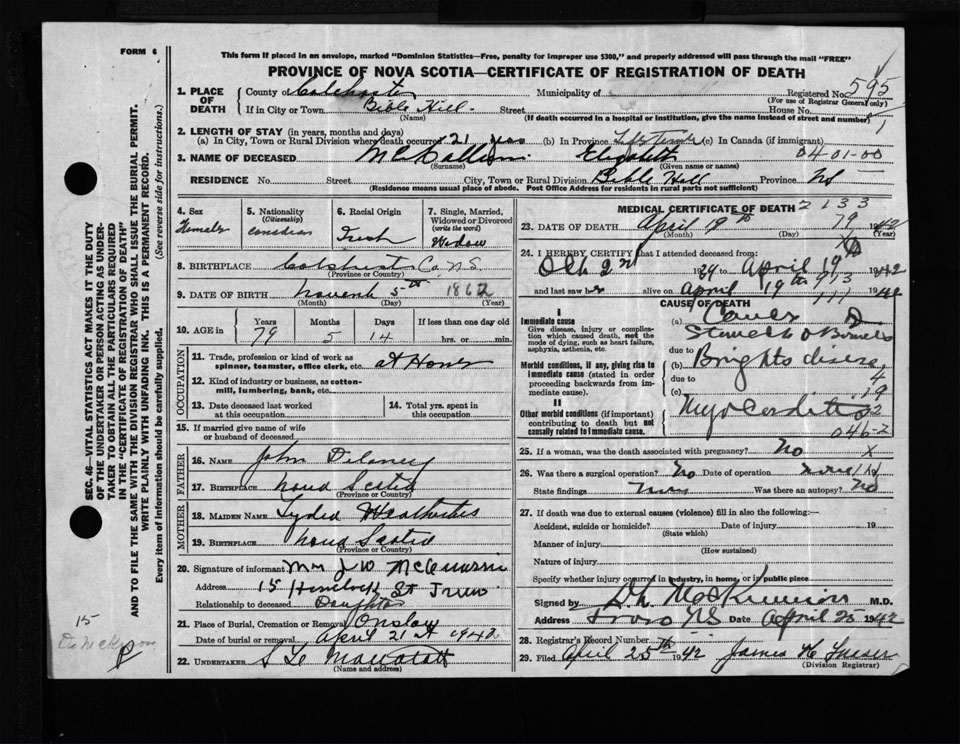 FORM 6
This form if placed in an envelope, marked "Dominion Statistics—Free, penalty for improper use $300," and properly addressed will pass through the mail "FREE"
PROVINCE OF NOVA SCOTIA—CERTIFICATE OF REGISTRATION OF DEATH
1. PLACE OF DEATH
County of Colchester Municipality of Registered No. 595
(For use of Registrar General only)
If in City or Town Bible Hill Street House No.
(Name) (If death occurred in a hospital or institution, give the name instead of street and number)
2. LENGTH OF STAY (in years, months and days)
(a) In City, Town or Rural Division where death occurred 21 yrs (b) In Province Life Time (c) In Canada (if immigrant)
3. NAME OF DECEASED McCallum Elizabeth 0401-00
(Surname) (Given name or names)
RESIDENCE No. Street City, Town or Rural Division Bible Hill Province NS
(Residence means usual place of abode. Post Office Address for residents in rural parts not sufficient)
4. Sex Female
5. Nationality (Citizenship) Canadian
6. Racial Origin Irish
7. Single, Married, Widowed or Divorced (write the word) Widow
8. BIRTHPLACE Colchester Co. N.S.
(Province or Country)
9. DATE OF BIRTH 5th 1862
(Month) (Day) (Year)
10. AGE in Years Months Days If less than one day old
79 5 14 hrs. or min.
OCCUPATION
11. Trade, profession or kind of work as spinner, teamster, office clerk, etc. at Home
12. Kind of industry or business, as cotton-mill, lumbering, bank, etc.
13. Date deceased last worked at this occupation
14. Total yrs. spent in this occupation
15. If married give name of wife or husband of deceased
FATHER
16. NAME John Delaney
17. BIRTHPLACE Nova Scotia
(Province or Country)
MOTHER
18. MAIDEN NAME Lydia
19. BIRTHPLACE Nova Scotia
(Province or Country)
20. Signature of informant Mrs J W
Address 15 St Truro
Relationship to deceased Daughter
21. Place of Burial, Cremation or Removal Onslow
Date of burial or removal April 21st 1942
22. UNDERTAKER
(Name and address)
MEDICAL CERTIFICATE OF DEATH 2133
23. DATE OF DEATH April 19th 79 1942
(Month) (Day) (Year)
24. I HEREBY CERTIFY that I attended deceased from
Oct 2nd 1939 to April 19th 1942
and last saw her alive on April 19th 1942
CAUSE OF DEATH
I
Immediate cause
Give disease, injury or complication which caused death, not the mode of dying, such as heart failure, asphyxia, asthenia, etc.
(a) Cancer
Stomach & Bowels
due to
Morbid conditions, if any, giving rise to immediate cause (stated in order proceeding backwards from immediate cause).
(b) Brights disease
due to
(c)
II
Other morbid conditions (if important) contributing to death but not causally related to immediate cause.
Myocarditis
046-2
25. If a woman, was the death associated with pregnancy? No X
26. Was there a surgical operation? No Date of operation
State findings Was there an autopsy? No
27. If death was due to external causes (violence) fill in also the following:—
Accident, suicide or homicide? Date of injury 19
(State which)
Manner of injury
(How sustained)
Nature of injury
Specify whether injury occurred in industry, in home, or in public place
Signed by M.D.
Address Truro N.S. Date April 25 1942
28. Registrar's Record Number
29. Filed April 25th 1942 James
(Division Registrar)
SEC. 46—VITAL STATISTICS ACT MAKES IT THE DUTY OF THE UNDERTAKER OR PERSON ACTING AS UNDERTAKER TO OBTAIN ALL THE PARTICULARS REQUIRED IN THE "CERTIFICATE OF REGISTRATION OF DEATH" AND TO FILE THE SAME WITH THE DIVISION REGISTRAR WHO SHALL ISSUE THE BURIAL PERMIT.
WRITE PLAINLY WITH UNFADING INK. THIS IS A PERMANENT RECORD.
Every item of information should be carefully supplied. (See reverse side for instructions.)
15